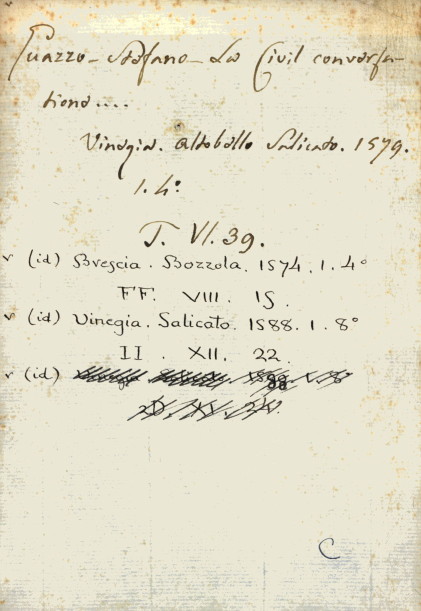 Guazzo - Stefano - La Civil conversa-
tione....
Vinegia. Altobello Salicato. 1579.
1. 4°
T. VI. 39.
v (id) Brescia. Bozzola. 1574. 1. 4°
FF. VIII. 15.
v (id) Vinegia. Salicato. 1588. 1. 8°
II. XII. 22.
v (id)
C